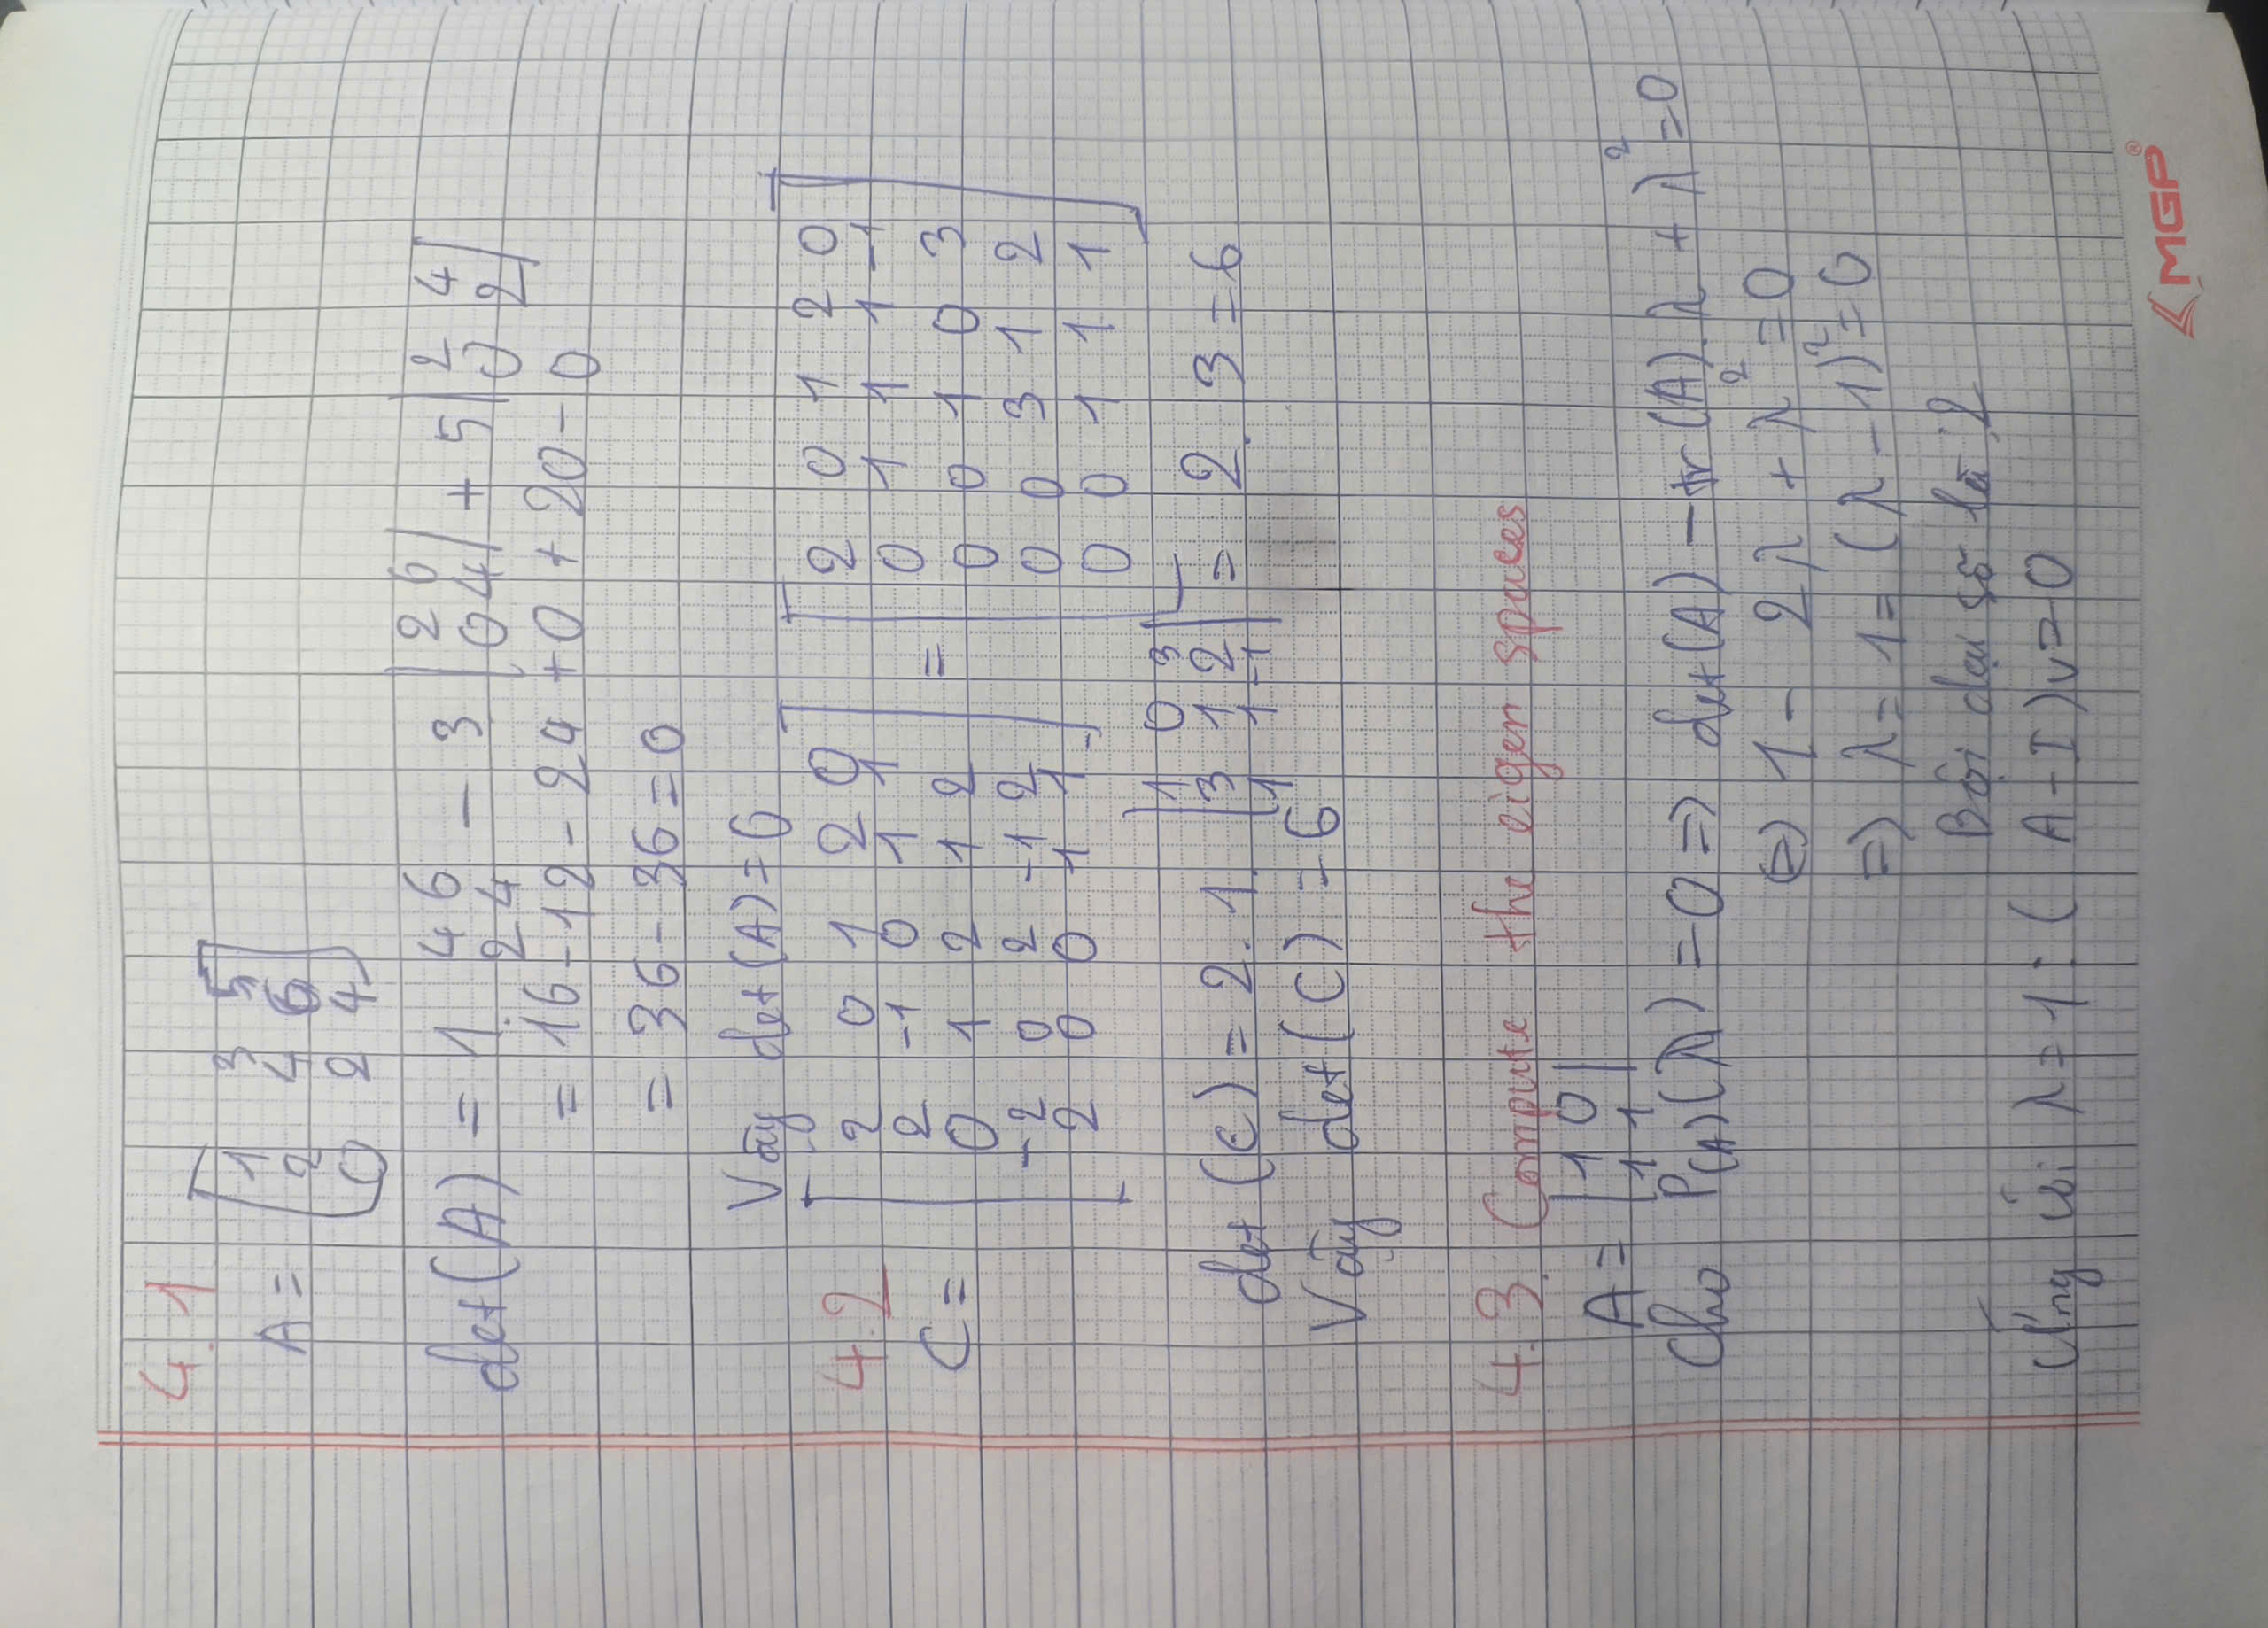 4.1
A = [1 3 5
2 4 6
0 2 4]
det(A) = 1. |4 6
2 4| - 3 |2 6
0 4| + 5 |2 4
0 2|
= 16 - 12 - 24 + 0 + 20 - 0
= 36 - 36 = 0
Vậy det(A) = 0
4.2
C = [2 0 1 2 0
2 -1 0 1 1
0 1 2 1 2
-2 0 2 -1 2
2 0 0 1 1] = [2 0 1 2 0
0 1 1 1 -1
0 0 1 0 3
0 0 3 1 2
0 0 1 1 1]
det(C) = 2. 1. |1 0 3
3 1 2
1 1 -1| = 2. 3 = 6
Vậy det(C) = 6
4.3. Compute the eigen spaces
A = |1 0
1 1|
Cho P(A)(λ) = 0 => det(A) - tr(A).λ + λ² = 0
<=> 1 - 2λ + λ² = 0
=> λ = 1 = (λ - 1)² = 0
Bội đại số là: 2
Ứng với λ = 1: (A - I)v = 0
MGP®